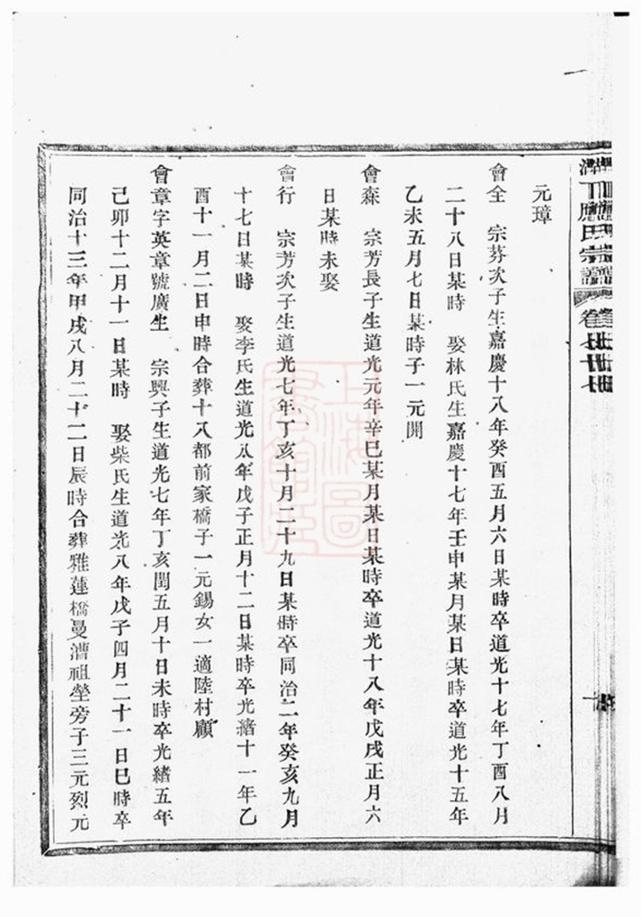 氏宗譜
卷
元璋
會全 宗芬次子生嘉慶十八年癸酉五月六日某時卒道光十七年丁酉八月
二十八日某時 娶林氏生嘉慶十七年壬申某月某日某時卒道光十五年
乙未五月七日某時子一元開
會森 宗芳長子生道光元年辛巳某月某日某時卒道光十八年戊戌正月六
日某時未娶
會行 宗芳次子生道光七年丁亥十月二十九日某時卒同治二年癸亥九月
十七日某時 娶李氏生道光八年戊子正月十二日某時卒光緒十一年乙
酉十一月二日申時合葬十八都前家橋子一元錫女一適陸村顧
會章字英章號廣生 宗興子生道光七年丁亥閏五月十日未時卒光緒五年
己卯十二月十一日某時 娶柴氏生道光八年戊子四月二十一日巳時卒
同治十三年甲戌八月二十二日辰時合葬雅蓮橋曼漕祖塋旁子三元烈元